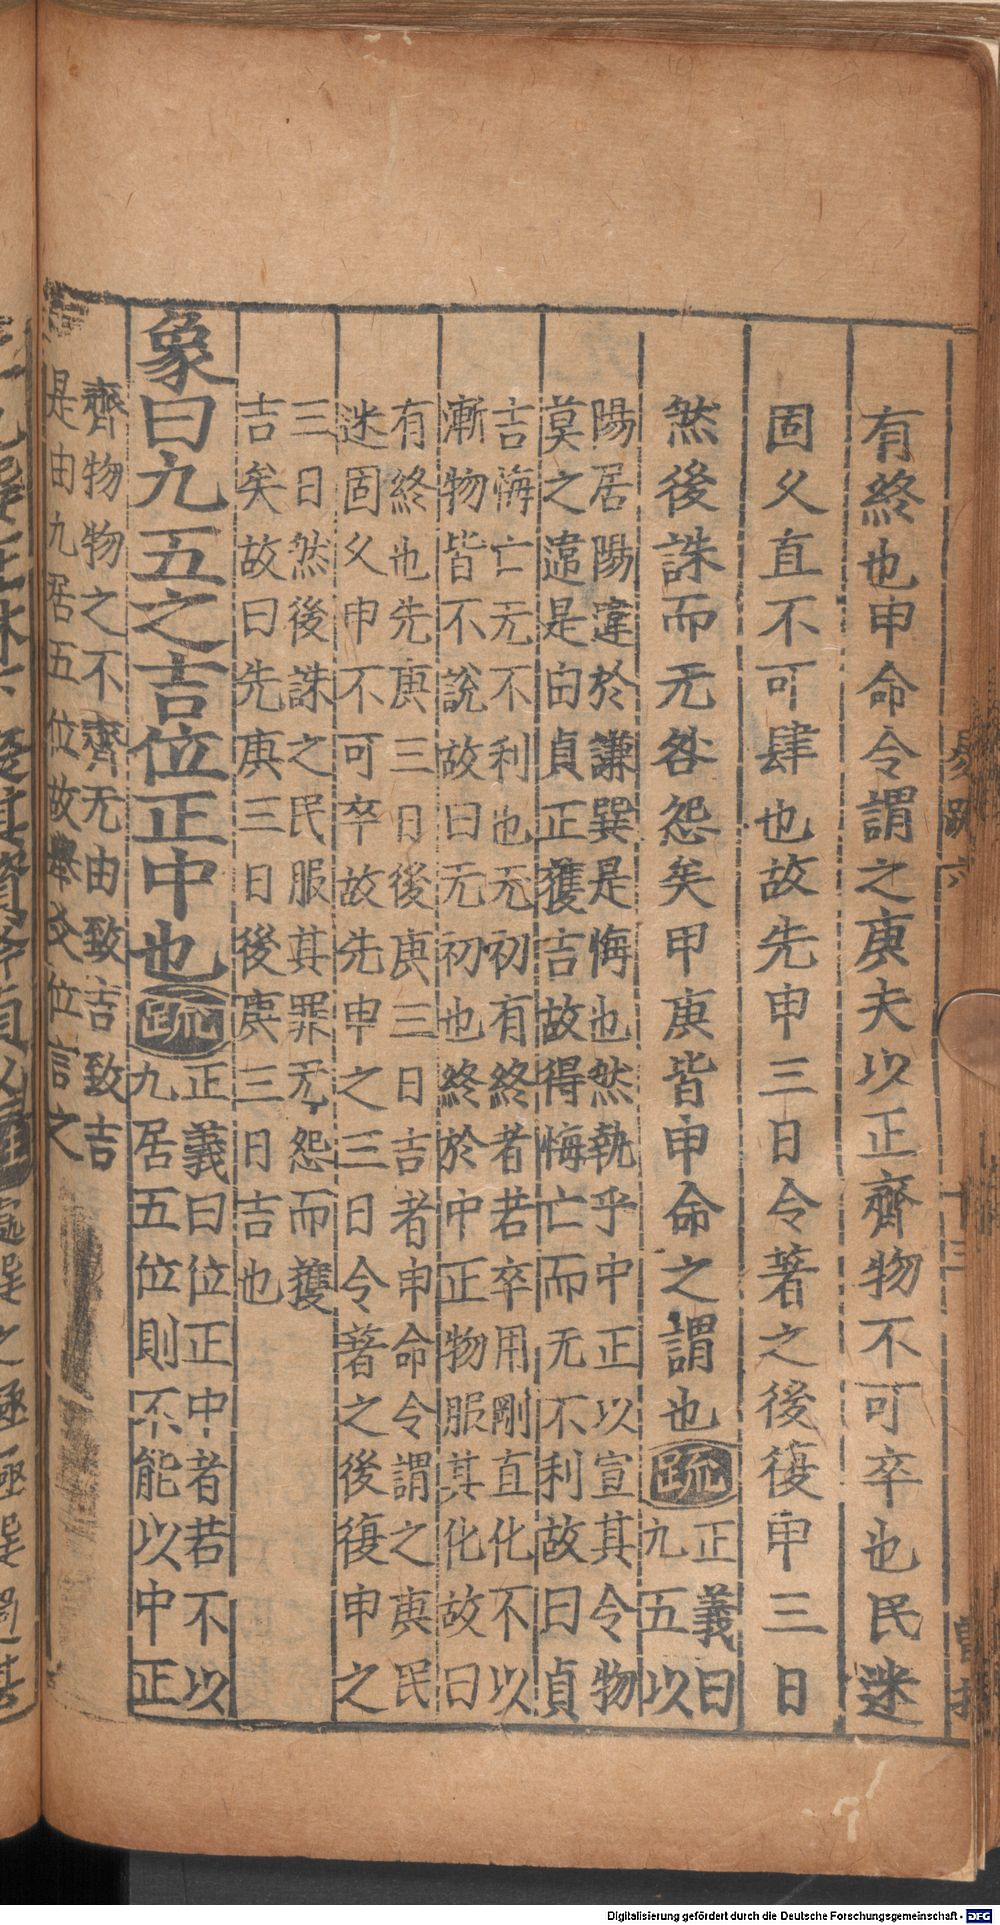 有終也申命令謂之庚夫以正齊物不可卒也民迷
固乆直不可肆也故先申三日令著之後復申三日
然後誅而无咎怨矣甲庚皆申命之謂也疏正義曰
九五以
陽居陽違於謙巽是悔也然執乎中正以宣其令物
莫之違是由貞正獲吉故得悔亡而无不利故曰貞
吉悔亡无不利也无初有終者若卒用剛直化不以
漸物皆不說故曰无初也終於中正物服其化故曰
有終也先庚三日後庚三日吉者申命令謂之庚民
迷固乆申不可卒故先申之三日令著之後復申之
三日然後誅之民服其罪无怨而獲
吉矣故曰先庚三日後庚三日吉也
象曰九五之吉位正中也疏正義曰位正中者若不以
九居五位則不能以中正
齊物物之不齊无由致吉致吉
是由九居五位故舉爻位言之
易疏六
十三
Digitalisierung gefördert durch die Deutsche Forschungsgemeinschaft - DFG